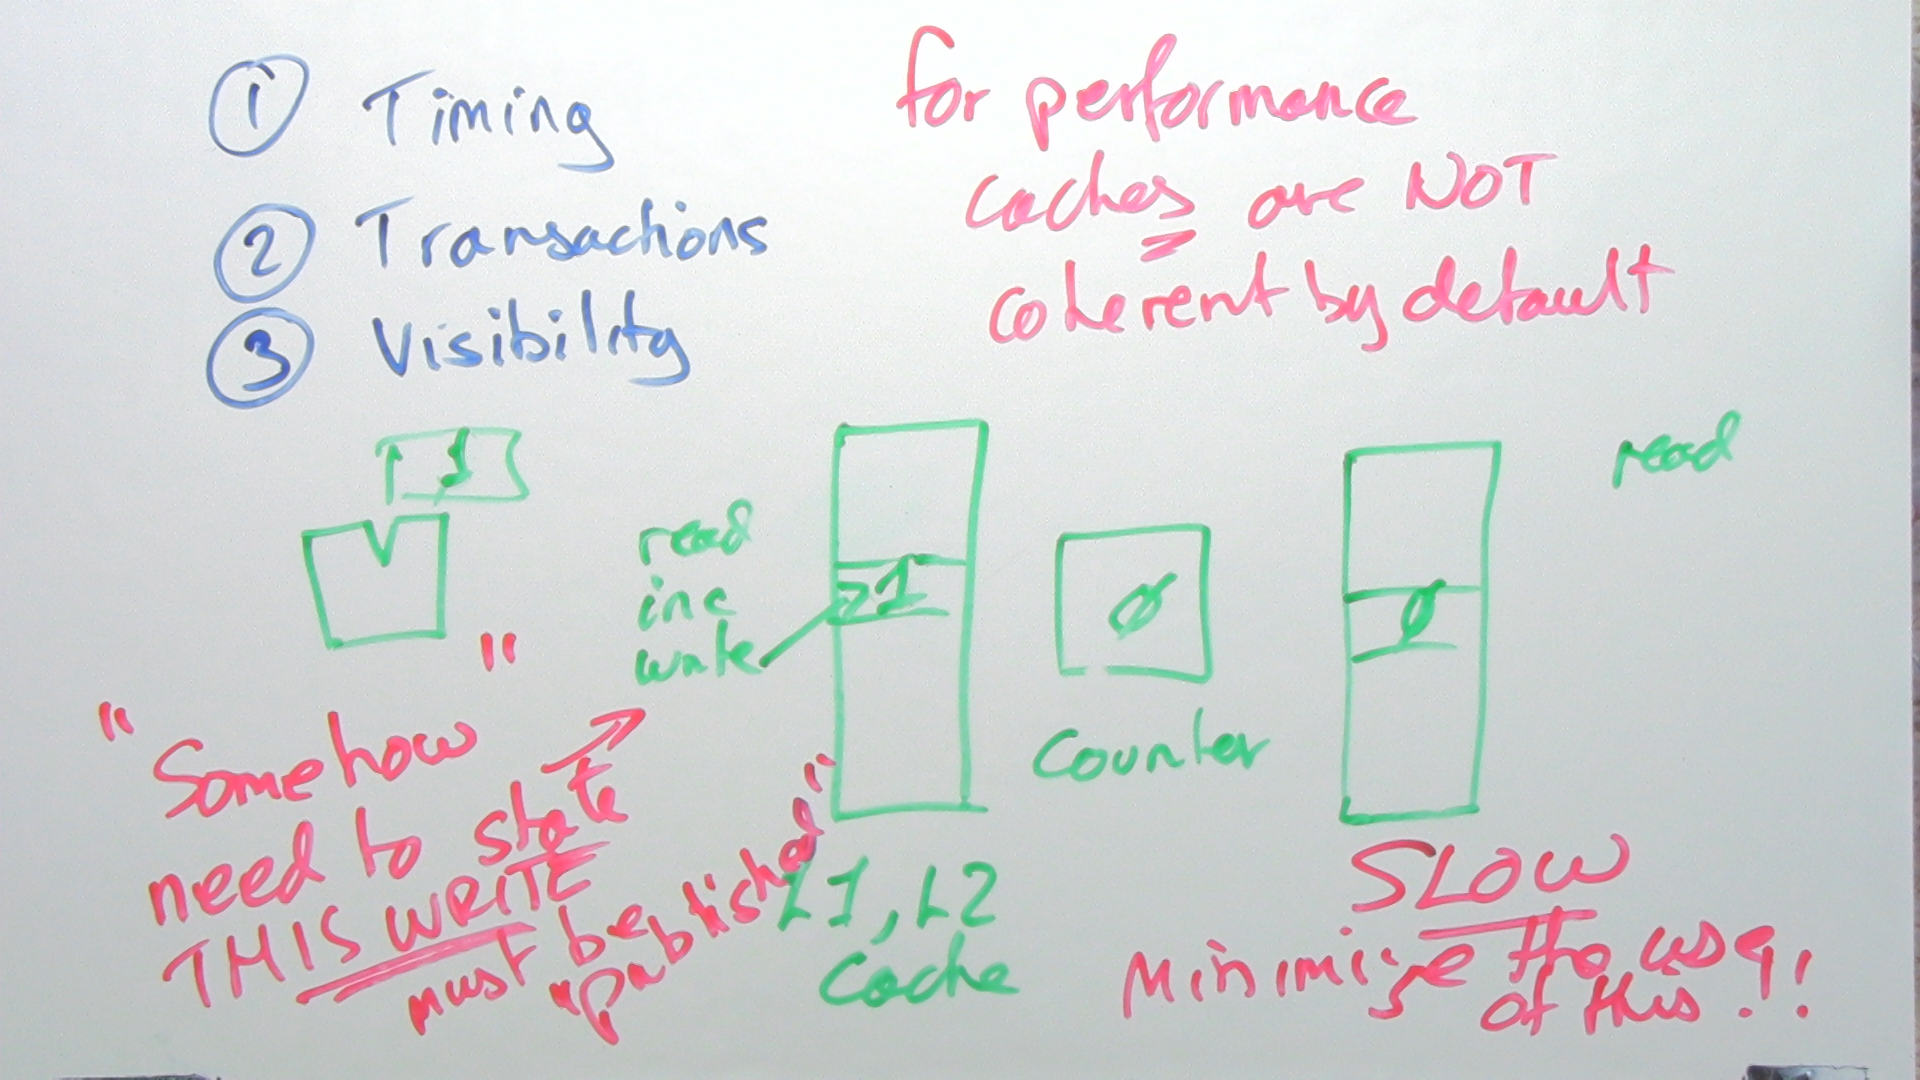 ① Timing
② Transactions
③ Visibility
for performance
caches are NOT
coherent by default
1
read
inc
write
1
0
Counter
0
read
L1, L2
Cache
"Somehow
need to state
THIS WRITE
must be
"published"
"
SLOW
Minimize the use
of this!!